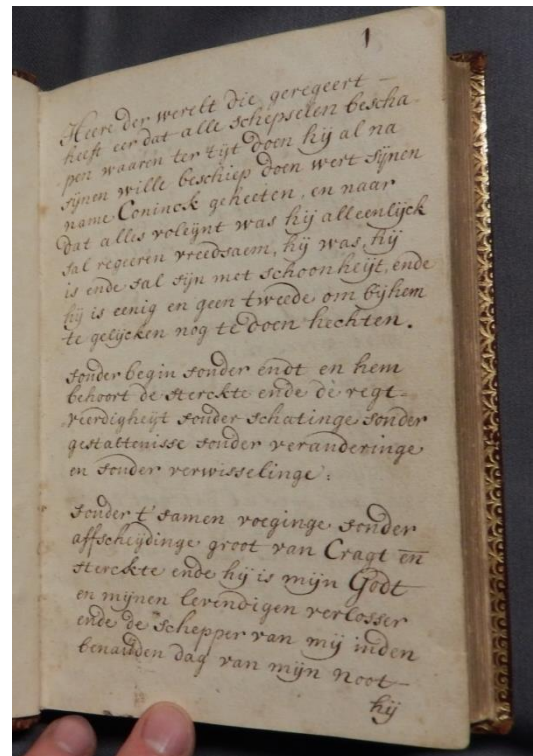 1
Heere der werelt die geregeert -
heeft eer dat alle schepselen bescha-
pen waaren ter tijt doen hij al na
sijnen wille beschiep doen wert sijnen
name Coninck geheeten, en naar
dat alles voleijnt was hij alleenlijck
sal regeeren vreedsaem, hij was, hij
is ende sal sijn met schoonheijt, ende
hij is eenig en geen tweede om bij hem
te gelijcken nog te doen hechten.
sonder begin sonder endt en hem
behoort de sterckte ende de regt-
veerdigheijt sonder schatinge sonder
gestattenisse sonder veranderinge
en sonder verwisselinge:
sonder t' samen voeginge sonder
affscheijdinge groot van Cragt en
sterckte ende hij is mijn Godt
en mijnen levendigen verlosser
ende de schepper van mij inden
benauden dag van mijn noot -
hij